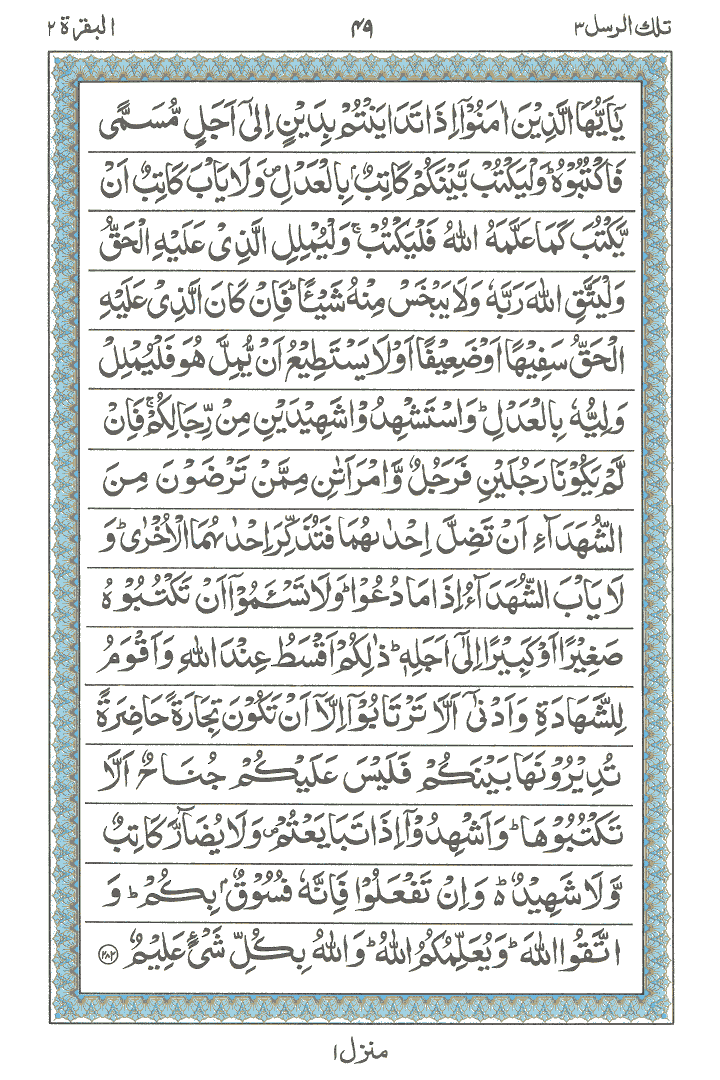 تلك الرسل ٣ ٤٩ البقرة ٢
يٰۤاَيُّهَا الَّذِيْنَ اٰمَنُوْۤا اِذَا تَدَايَنْتُمْ بِدَيْنٍ اِلٰۤى اَجَلٍ مُّسَمًّى
فَاكْتُبُوْهُ ؕ وَلْيَكْتُبْ بَّيْنَكُمْ كَاتِبٌۢ بِالْعَدْلِ ۪ وَلَا يَاْبَ كَاتِبٌ اَنْ
يَّكْتُبَ كَمَا عَلَّمَهُ اللّٰهُ فَلْيَكْتُبْ ۚ وَلْيُمْلِلِ الَّذِيْ عَلَيْهِ الْحَقُّ
وَلْيَتَّقِ اللّٰهَ رَبَّهٗ وَلَا يَبْخَسْ مِنْهُ شَيْـًٔا ؕ فَاِنْ كَانَ الَّذِيْ عَلَيْهِ
الْحَقُّ سَفِيْهًا اَوْ ضَعِيْفًا اَوْ لَا يَسْتَطِيْعُ اَنْ يُّمِلَّ هُوَ فَلْيُمْلِلْ
وَلِيُّهٗ بِالْعَدْلِ ؕ وَاسْتَشْهِدُوْا شَهِيْدَيْنِ مِنْ رِّجَالِكُمْ ۚ فَاِنْ
لَّمْ يَكُوْنَا رَجُلَيْنِ فَرَجُلٌ وَّامْرَاَتٰنِ مِمَّنْ تَرْضَوْنَ مِنَ
الشُّهَدَآءِ اَنْ تَضِلَّ اِحْدٰىهُمَا فَتُذَكِّرَ اِحْدٰىهُمَا الْاُخْرٰى ؕ وَ
لَا يَاْبَ الشُّهَدَآءُ اِذَا مَا دُعُوْا ؕ وَلَا تَسْـَٔمُوْۤا اَنْ تَكْتُبُوْهُ
صَغِيْرًا اَوْ كَبِيْرًا اِلٰۤى اَجَلِهٖ ؕ ذٰلِكُمْ اَقْسَطُ عِنْدَ اللّٰهِ وَاَقْوَمُ
لِلشَّهَادَةِ وَاَدْنٰۤى اَلَّا تَرْتَابُوْۤا اِلَّاۤ اَنْ تَكُوْنَ تِجَارَةً حَاضِرَةً
تُدِيْرُوْنَهَا بَيْنَكُمْ فَلَيْسَ عَلَيْكُمْ جُنَاحٌ اَلَّا
تَكْتُبُوْهَا ؕ وَاَشْهِدُوْۤا اِذَا تَبَايَعْتُمْ ۪ وَلَا يُضَآرَّ كَاتِبٌ
وَّلَا شَهِيْدٌ ؕ وَاِنْ تَفْعَلُوْا فَاِنَّهٗ فُسُوْقٌۢ بِكُمْ ؕ وَ
اتَّقُوا اللّٰهَ ؕ وَيُعَلِّمُكُمُ اللّٰهُ ؕ وَاللّٰهُ بِكُلِّ شَيْءٍ عَلِيْمٌ ﴿٢٨٢﴾
منزل ١